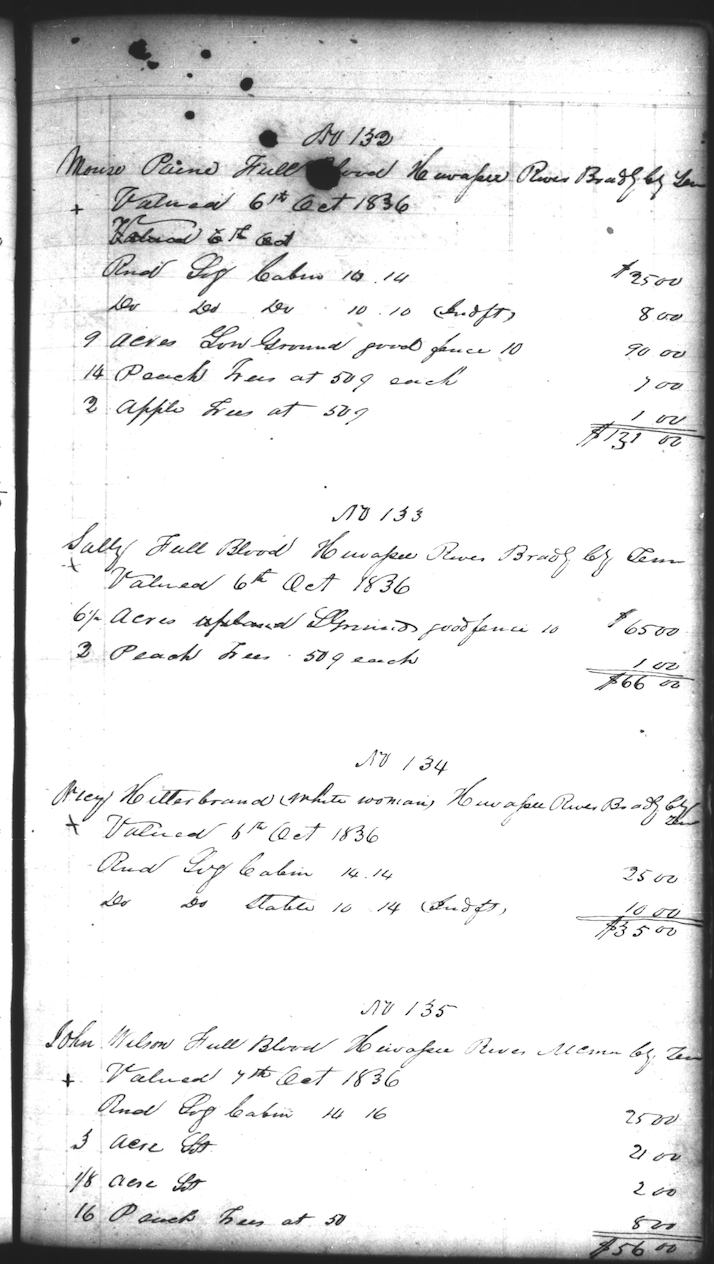 No 132
Mouse Paine Full Blood Hiwassee River Bradly Cty Ten
+ Valued 6th Oct 1836
Valued 6th Oct
Rnd Log Cabin 14 . 14 $25 00
Do Do Do 10 . 10 (Indft) 8 00
9 Acres Low Ground good fence 10 90 00
14 Peach Trees at 50¢ each 7 00
2 Apple Trees at 50¢ 1 00
$131 00
No 133
Sally Full Blood Hiwassee River Bradly Cty Tenn
+ Valued 6th Oct 1836
6½ Acres upland Ground good fence 10 $65 00
2 Peach Trees . 50¢ each 1 00
$66 00
No 134
Nicy Hitterbrand (White woman) Hiwassee River Bradly Cty
Ten
+ Valued 6th Oct 1836
Rnd Log Cabin 14 . 14 25 00
Do Do Stable 10 . 14 (Indft) 10 00
$35 00
No 135
John Wilson Full Blood Hiwassee River McMn Cty. Ten
+ Valued 7th Oct 1836
Rnd Log Cabin 14 16 25 00
3 Acre Lot 21 00
1/8 Acre Lot 2 00
16 Peach Trees at 50 8 00
$56 00